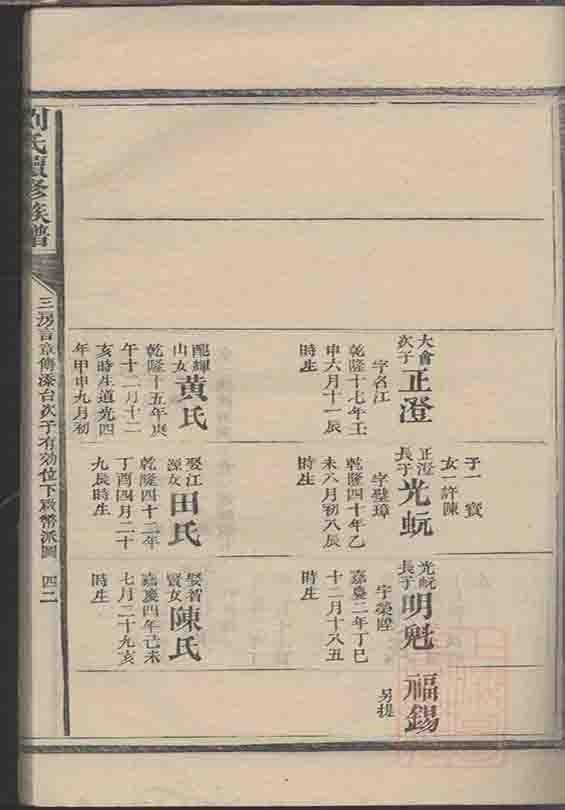 大會
次子
正澄
字名江
乾隆十七年壬
申六月十一辰
時生
配輝
山女
黄氏
乾隆十五年庚
午十二月十二
亥時生道光四
年甲申九月初
子一 賓
女一許陳
正澄
長子
光蚖
字璧璋
乾隆四十年乙
未八月初八辰
時生
娶江
源女
田氏
乾隆四十二年
丁酉四月二十
九辰時生
光蚖
長子
明魁
字榮陞
嘉慶二年丁巳
十二月十八丑
時生
娶首
賢女
陳氏
嘉慶四年己未
七月二十九亥
時生
福錫
另提
刘氏續修族譜
三房言章傳溙台次子有効位下啟幣派圖 四二